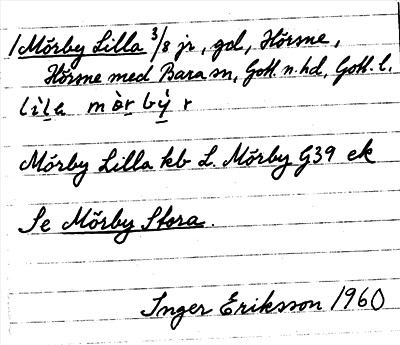 1 Mörby Lilla 3/8 jr, gd, Hörsne,
Hörsne med Bara sn, Gotl. n. hd, Gotl. l.
Mörby Lilla kb L. Mörby G39 ek
Se Mörby Stora.
Inger Eriksson 1960